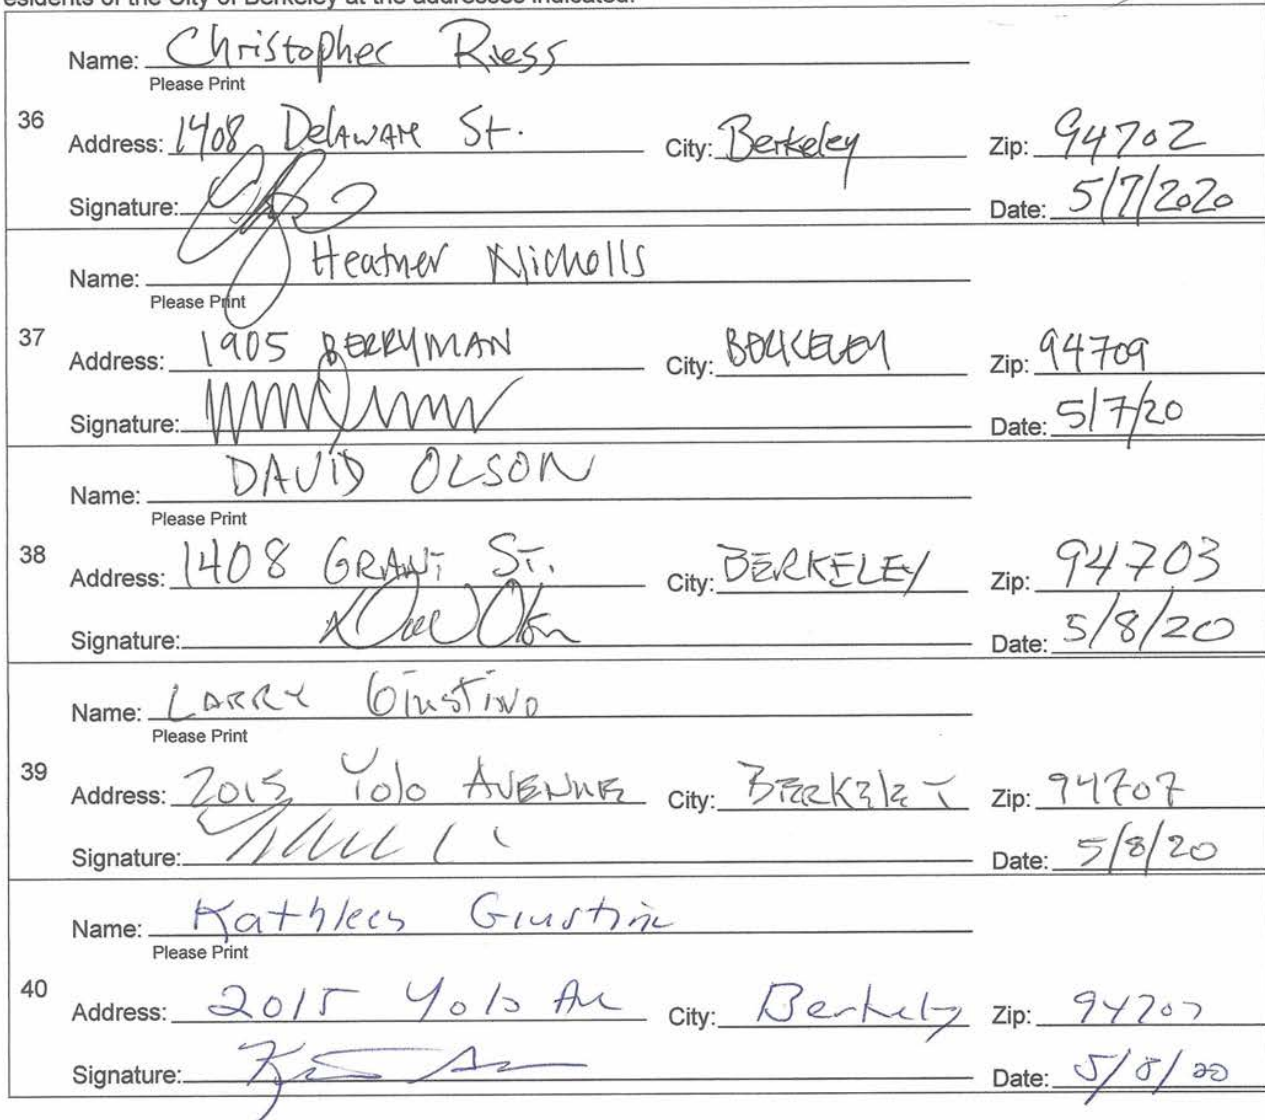 esidents of the City of Berkeley at the addresses indicated.
Name: Christopher Riess
Please Print
36
Address: 1408 Delaware St. City: Berkeley Zip: 94702
Signature: Date: 5/7/2020
Name: Heather Nicholls
Please Print
37
Address: 1905 BERRYMAN City: BERKELEY Zip: 94709
Signature: Date: 5/7/20
Name: DAVID OLSON
Please Print
38
Address: 1408 GRANT ST. City: BERKELEY Zip: 94703
Signature: Date: 5/8/20
Name: LARRY GIUSTINO
Please Print
39
Address: 2015 Yolo AVENUE City: BERKELEY Zip: 94707
Signature: Date: 5/8/20
Name: Kathleen Giustino
Please Print
40
Address: 2015 Yolo Ave City: Berkeley Zip: 94707
Signature: Date: 5/8/20